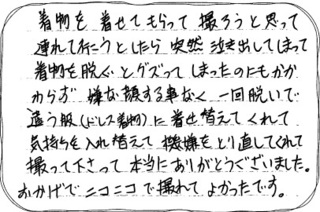 着物を着せてもらって撮ろうと思って
連れて行こうとしたら突然泣き出してしまって
着物を脱ぐとグズってしまったのにもかか
わらず嫌な顔する事なく一回脱いで
違う服(ドレス着物)に着せ替えてくれて
気持ちを入れ替えて機嫌をとり直してくれて
撮って下さって本当にありがとうございました。
おかげでニコニコで撮れてよかったです。